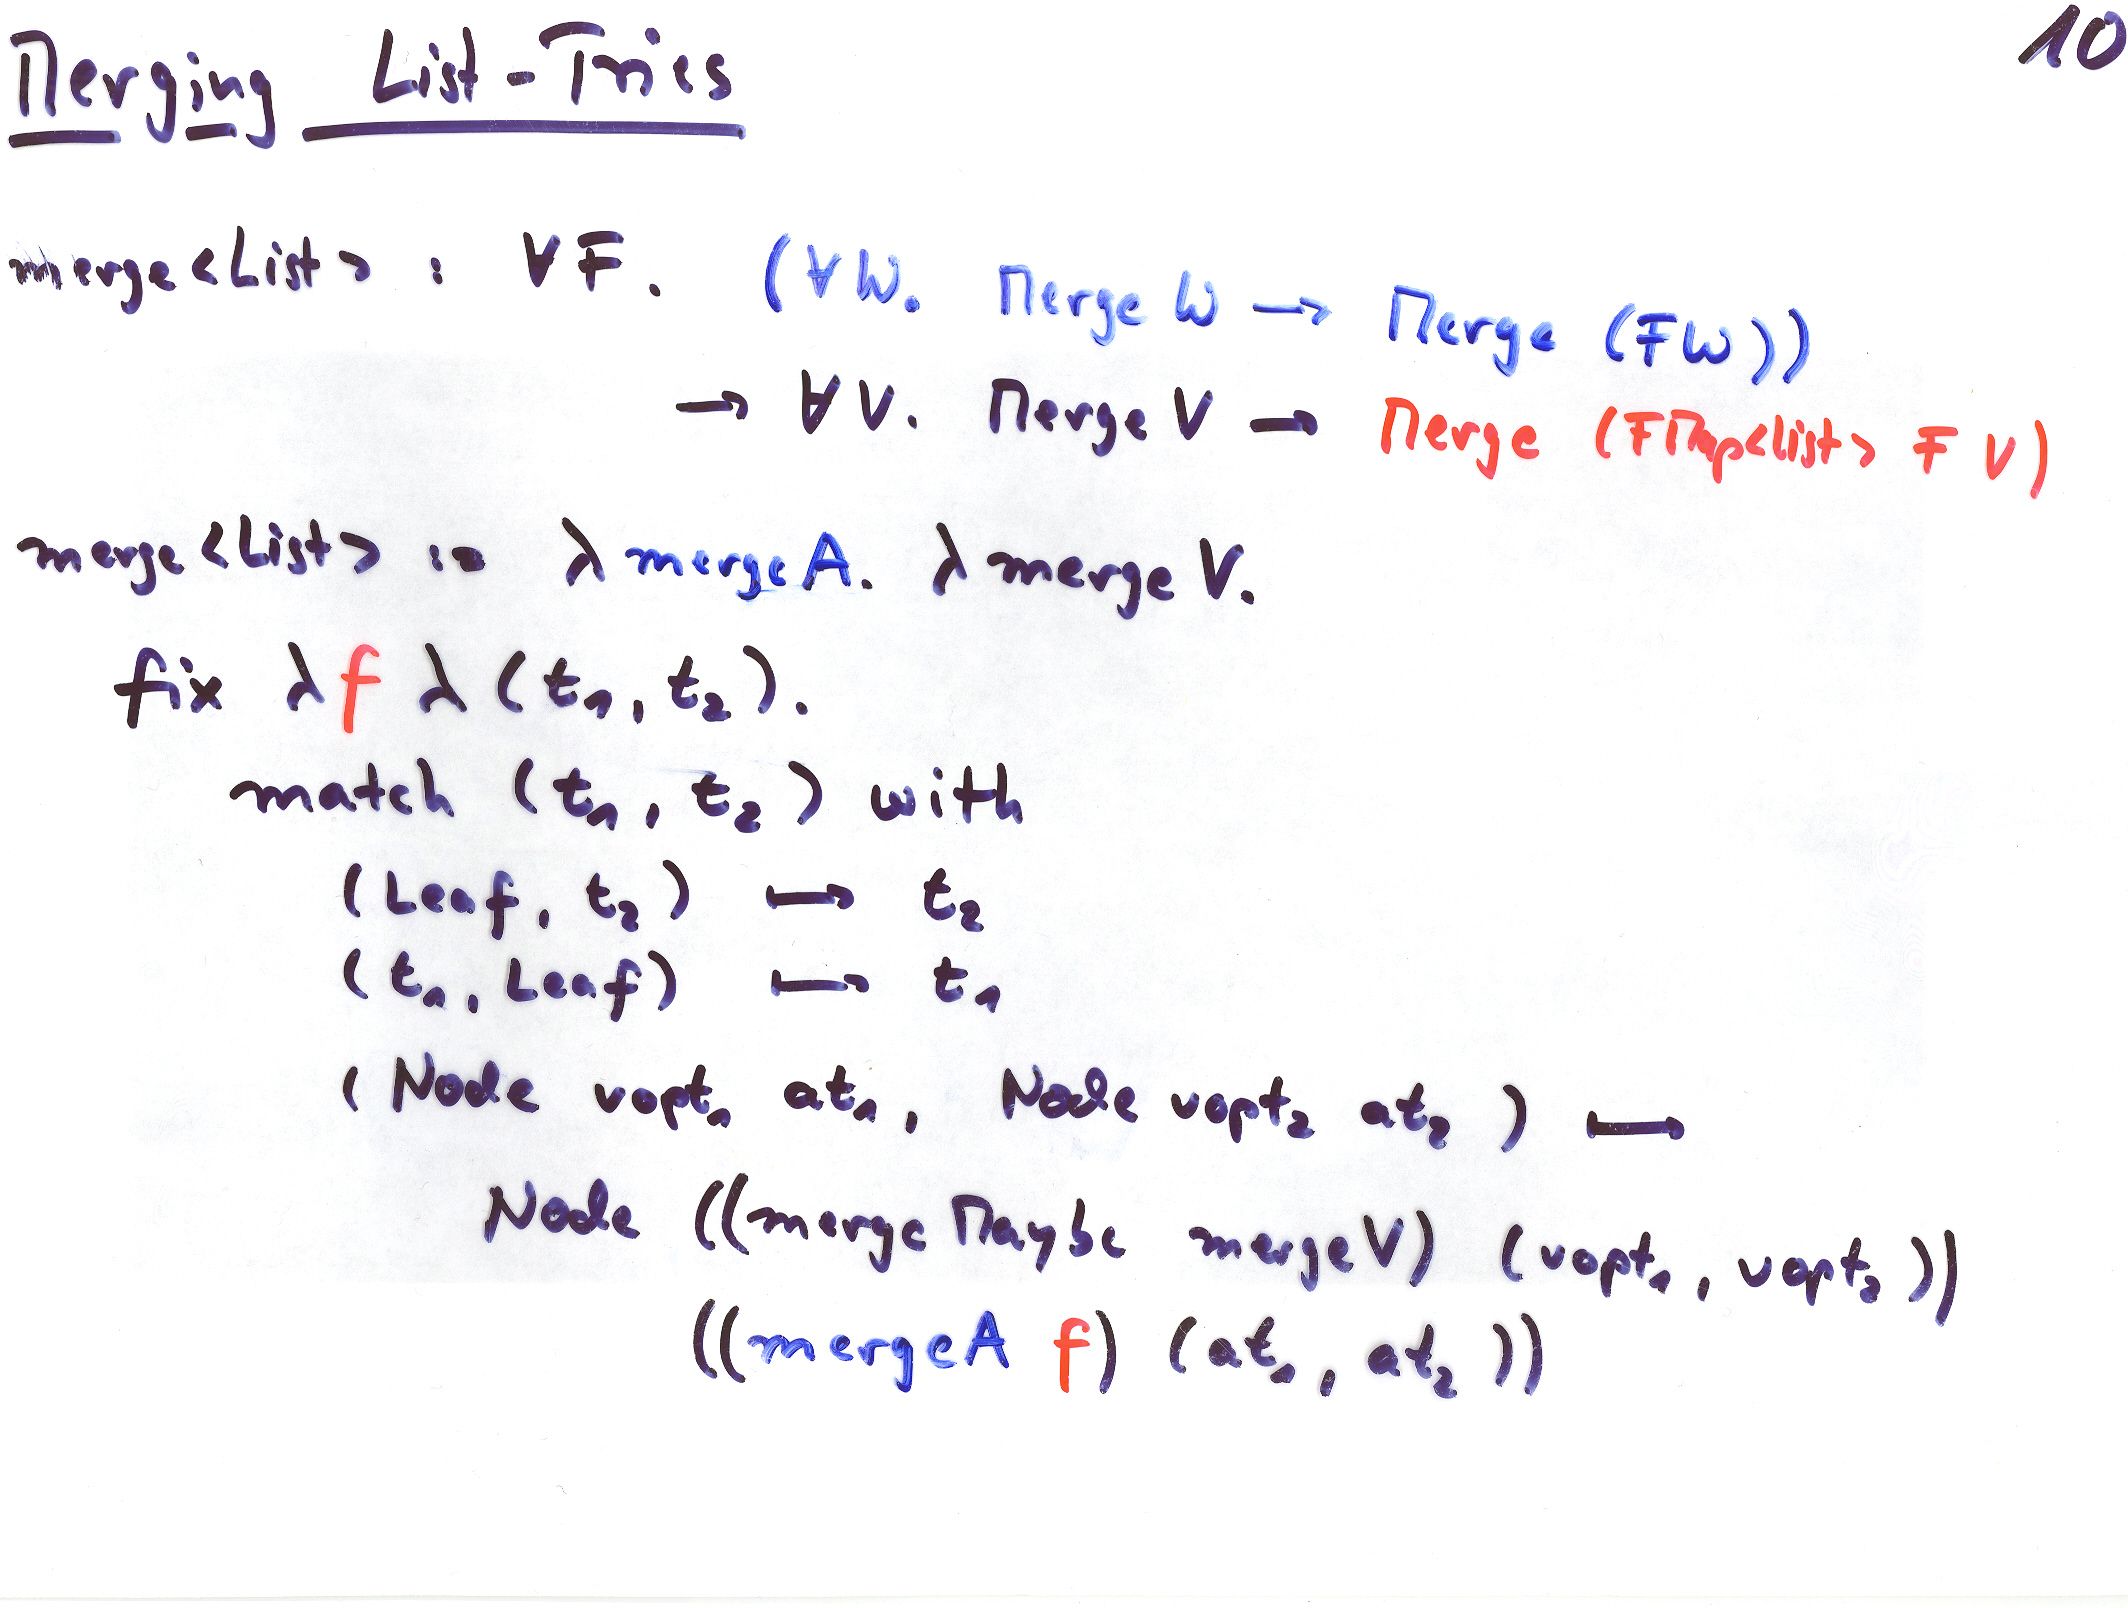 Merging List-Tries
10
merge<List> : ∀F. (∀W. Merge W → Merge (FW))
→ ∀V. Merge V → Merge (FMap<List> F V)
merge<List> := λ mergeA. λ mergeV.
fix λ f λ (t₁, t₂).
match (t₁, t₂) with
(Leaf, t₂) ⟼ t₂
(t₁, Leaf) ⟼ t₁
(Node vopt₁ at₁, Node vopt₂ at₂) ⟼
Node ((mergeMaybe mergeV) (vopt₁, vopt₂))
((mergeA f) (at₁, at₂))